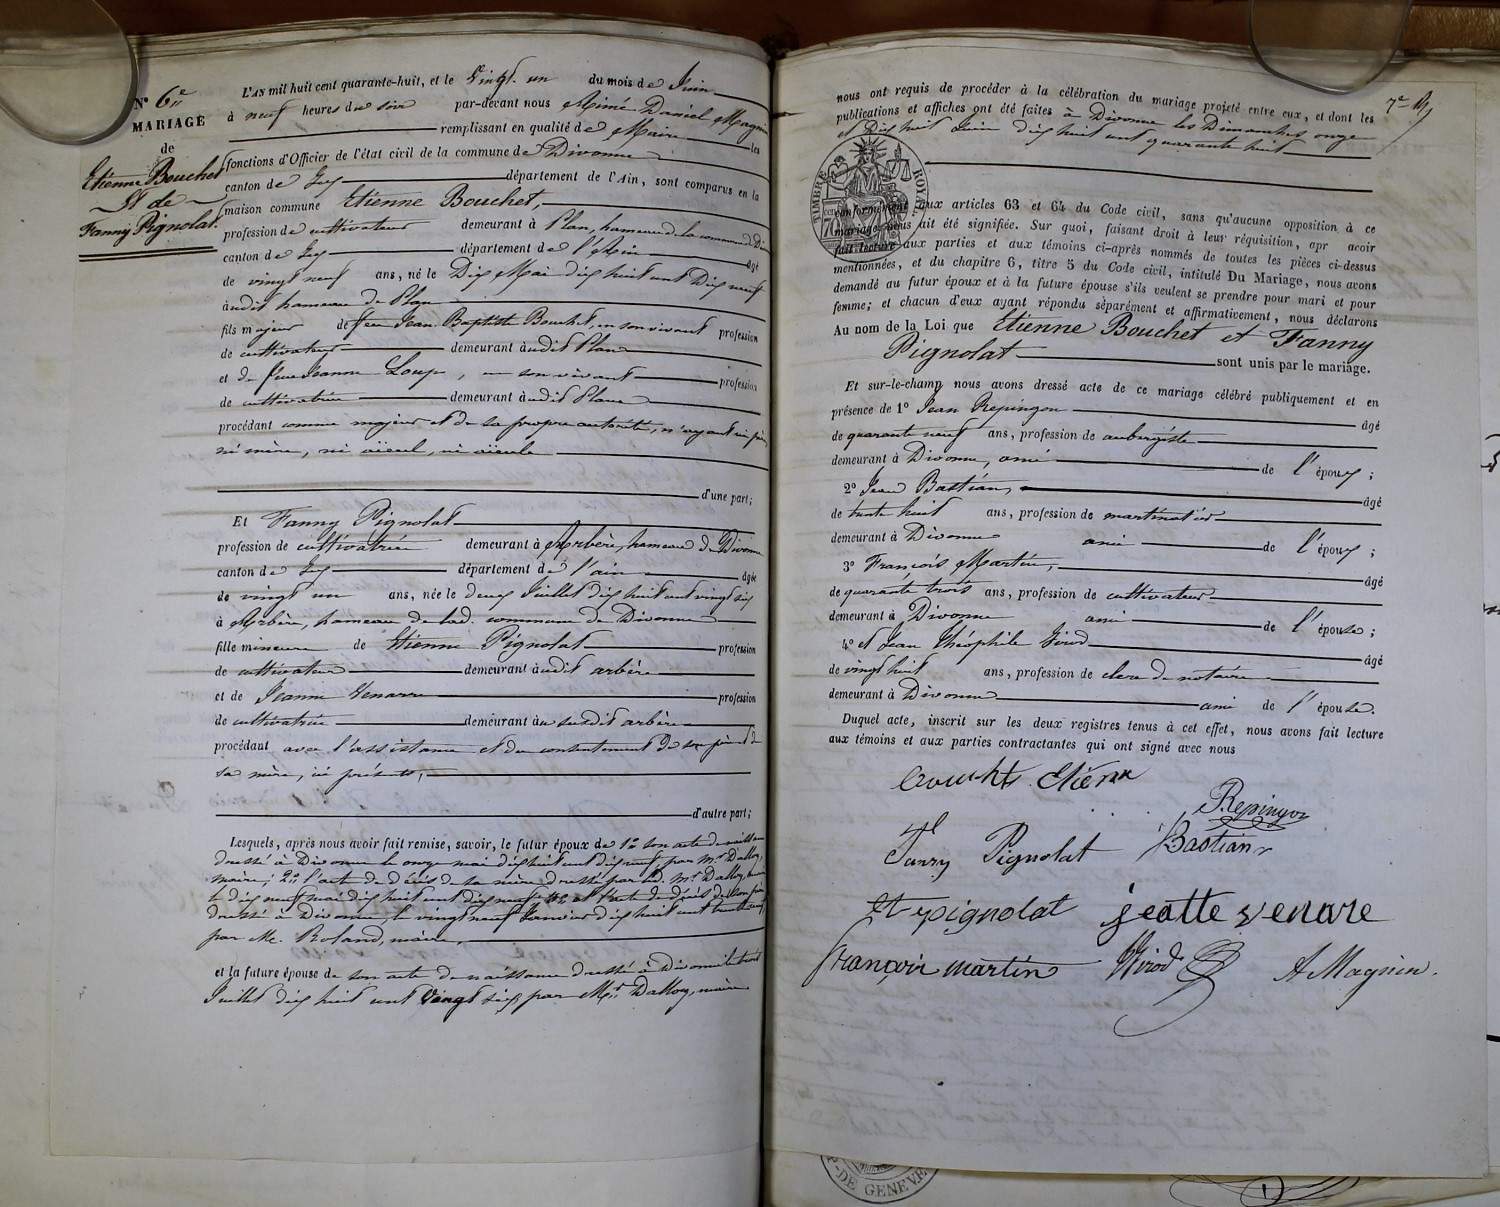 Nº 6e
MARIAGE
de
Etienne Bouchet
Et de
Fanny Pignolat
L'AN mil huit cent quarante-huit, et le Vingt un du mois de Juin
à neuf heures du soir par-devant nous Aimé Daniel Magnin
remplissant en qualité de Maire les
fonctions d'Officier de l'état civil de la commune de Divonne
canton de Gex département de l'Ain, sont comparus en la
maison commune Etienne Bouchet,
profession de cultivateur demeurant à Plan, hameau de la commune de
canton de Gex département de l'Ain âgé
de vingt neuf ans, né le Dix Mai dix huit cent Dix neuf
audit hameau de Plan
fils majeur de feu Jean Baptiste Bouchet, en son vivant profession
de cultivateur demeurant audit Plan
et de feue Jeanne Loup, en son vivant profession
de cultivatrice demeurant audit Plan
procédant comme majeur et de sa propre autorité, n'ayant ni père
ni mère, ni aïeul, ni aïeule
d'une part;
Et Fanny Pignolat
profession de cultivatrice demeurant à Arbère, hameau de Divonne
canton de Gex département de l'ain âgée
de vingt un ans, née le deux Juillet dix huit cent vingt six
à Arbère, hameau de lad. commune de Divonne
fille mineure de Etienne Pignolat profession
de cultivateur demeurant audit arbère
et de Jeanne Venarre profession
de cultivatrice demeurant au susdit arbère
procédant avec l'assistance et du consentement de son père et de
sa mère, ici présents,
d'autre part;
Lesquels, après nous avoir fait remise, savoir, le futur époux de 1º son acte de naissance
dressé à Divonne le onze mai dix huit cent dix neuf, par Mr Dalloz,
maire; 2º l'acte de décès de sa mère dressé par led. Mr Dalloz, maire
le dix neuf mai dix huit cent dix neuf et l'acte de décès de son père
dressé à Divonne, le vingt neuf Janvier dix huit cent
par Mr. Roland, maire,
et la future épouse de son acte de naissance dressé à Divonne le trois
Juillet dix huit cent vingt six par Mr Dalloz, maire
7e
nous ont requis de procéder à la célébration du mariage projeté entre eux, et dont les
publications et affiches ont été faites à Divonne les Dimanches onze
et Dix huit Juin dix huit cent quarante huit
TIMBRE ROYAL
conformément aux articles 63 et 64 du Code civil, sans qu'aucune opposition à ce
mariage nous ait été signifiée. Sur quoi, faisant droit à leur réquisition, apr avoir
fait lecture aux parties et aux témoins ci-après nommés de toutes les pièces ci-dessus
mentionnées, et du chapitre 6, titre 5 du Code civil, intitulé Du Mariage, nous avons
demandé au futur époux et à la future épouse s'ils veulent se prendre pour mari et pour
femme; et chacun d'eux ayant répondu séparément et affirmativement, nous déclarons
Au nom de la Loi que Etienne Bouchet et Fanny
Pignolat sont unis par le mariage.
Et sur-le-champ nous avons dressé acte de ce mariage célébré publiquement et en
présence de 1º Jean Repingon âgé
de quarante neuf ans, profession de aubergiste
demeurant à Divonne, ami de l'époux;
2º Jean Bastian, âgé
de trente huit ans, profession de
demeurant à Divonne ami de l'époux;
3º François Martin, âgé
de quarante trois ans, profession de cultivateur
demeurant à Divonne ami de l'épouse;
4º et Jean Théophile Girod âgé
de vingt huit ans, profession de clerc de notaire
demeurant à Divonne ami de l'épouse.
Duquel acte, inscrit sur les deux registres tenus à cet effet, nous avons fait lecture
aux témoins et aux parties contractantes qui ont signé avec nous
Bouchet Etienne
Repingon
Fanny Pignolat Bastian
Et pignolat jeatte venare
françois martin Girod A Magnin.
DE GENEVE